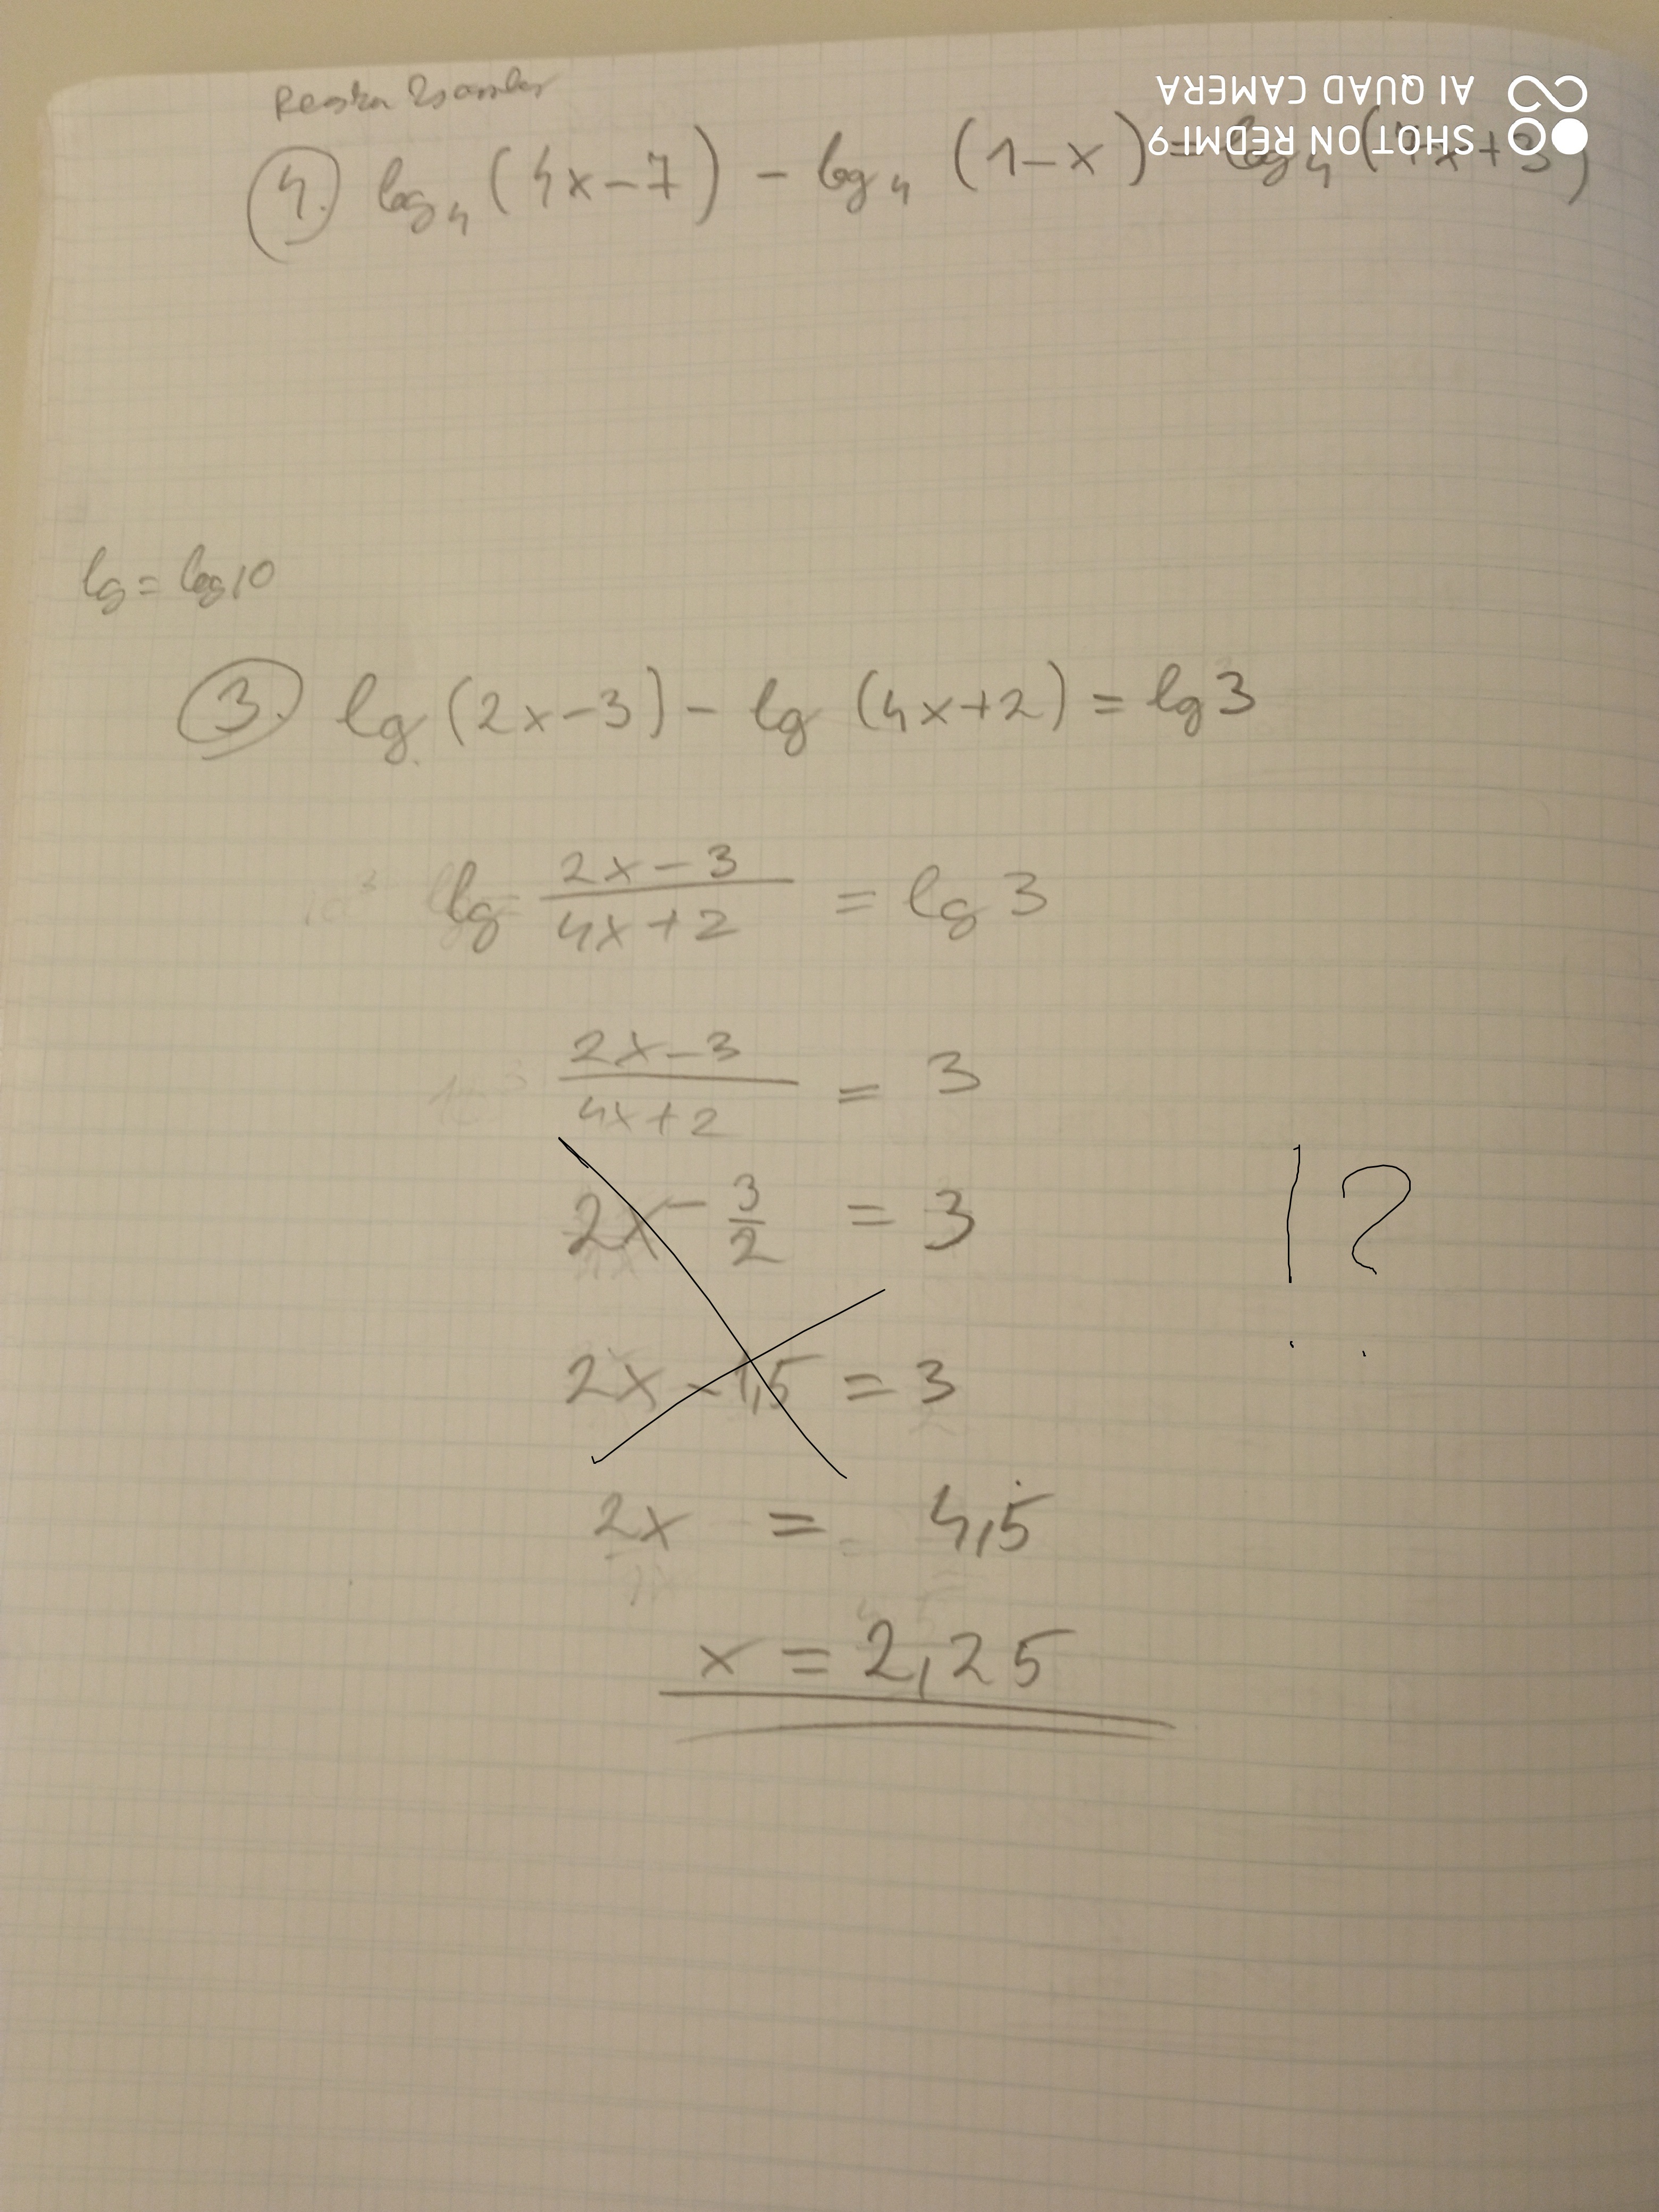 ④. log₄ (4x-7) - log₄ (1-x) = log₄ (4x+3)
SHOT ON REDMI 9
AI QUAD CAMERA
lg = log10
③. lg (2x-3) - lg (4x+2) = lg 3
lg (2x-3)/(4x+2) = lg 3
(2x-3)/(4x+2) = 3
2x - 3/2 = 3
!?
2x - 1,5 = 3
2x = 4,5
x = 2,25